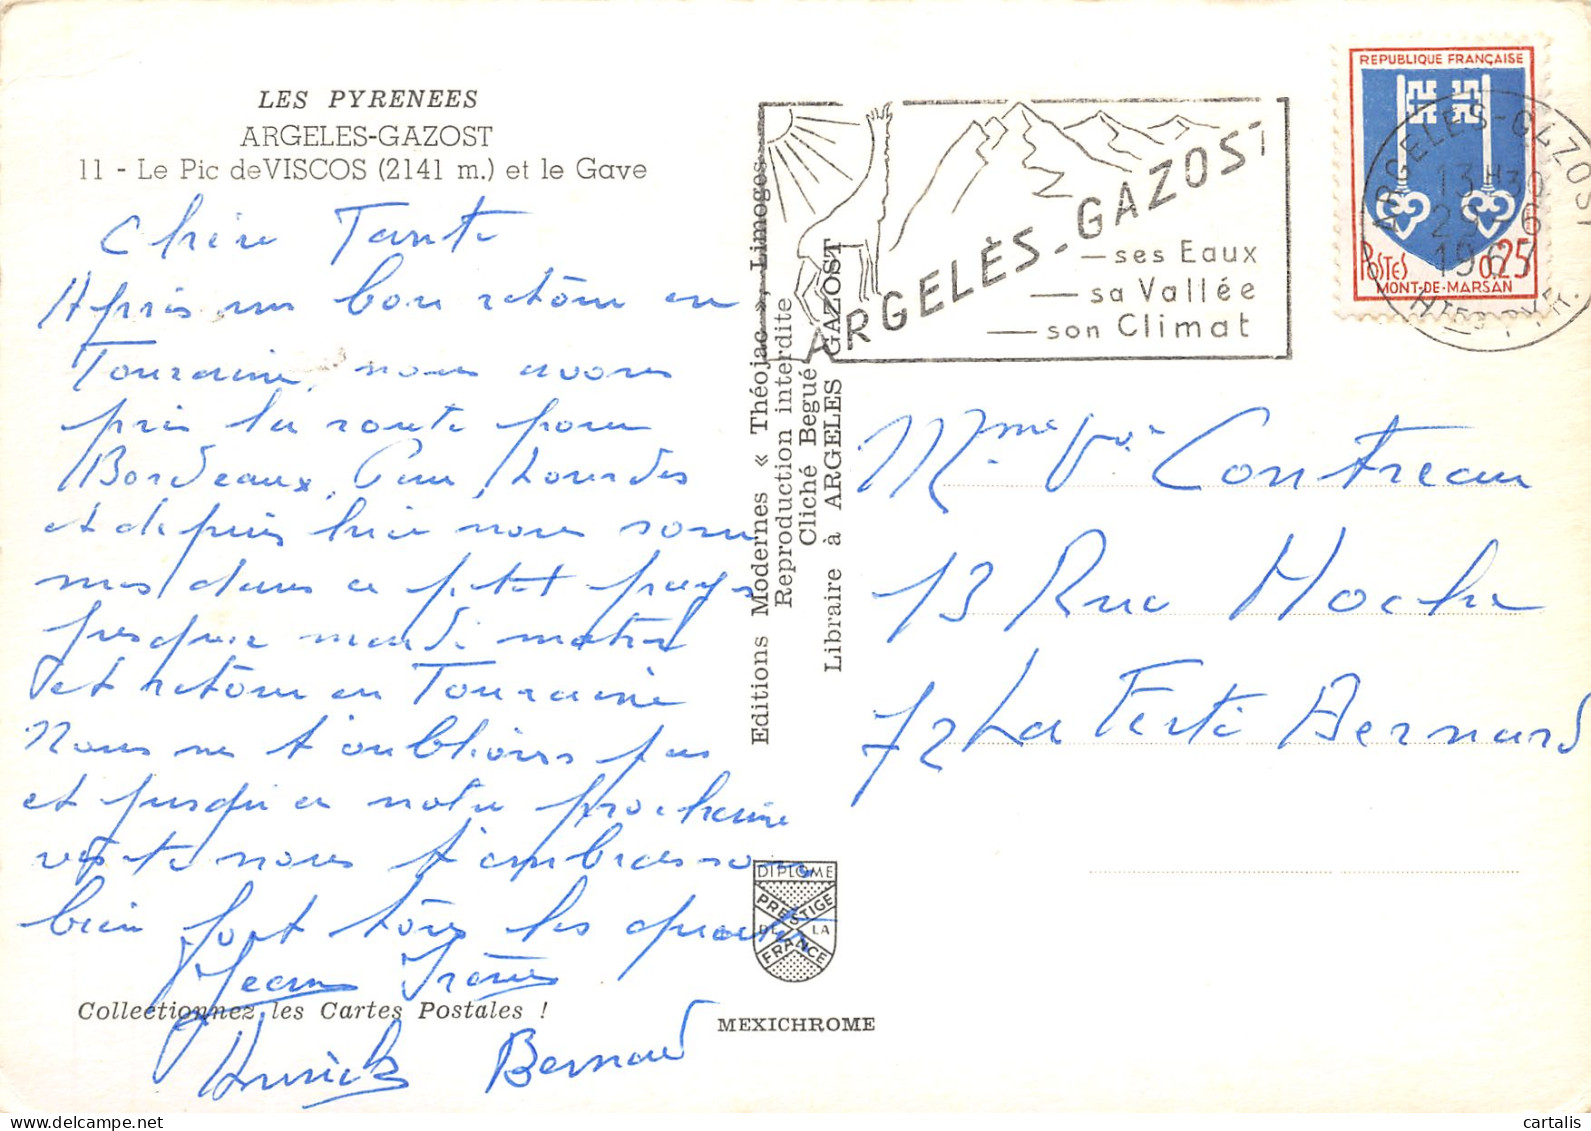 LES PYRENEES
ARGELES-GAZOST
11 - Le Pic de VISCOS (2141 m.) et le Gave
Chère Tante
Après un bon retour en
Touraine, nous avons
pris la route pour
Bordeaux, Pau, Lourdes
et depuis hier nous som
mes dans ce petit pays
jusqu'à mardi matin
et retour en Touraine
Nous ne t'oublions pas
et jusqu'à notre prochaine
visite nous t'embrassons
bien fort tous les quatre
Jean
Collectionnez les Cartes Postales !
Annick Bernard
Editions Modernes « Théojac », Limoges
Reproduction interdite
Cliché Begué
Libraire à ARGELES GAZOST
DIPLOME
PRESTIGE
DE LA
FRANCE
MEXICHROME
ARGELÈS-GAZOST
ses Eaux
sa Vallée
son Climat
REPUBLIQUE FRANÇAISE
POSTES 0,25
MONT-DE-MARSAN
ARGELES-GAZOST
13H30
1967
HTES PYR.
Mme Vve Contreau
13 Rue Hoche
72 La Ferté Bernard
cartalis